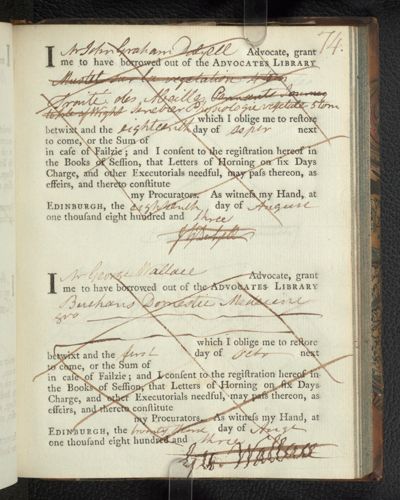 74.
I Mr John Graham Dalyell Advocate, grant
me to have borrowed out of the ADVOCATES LIBRARY
Traité des
Senebier Physiologie vegetale 5 tom
which I oblige me to restore
betwixt and the eighteenth day of next
to come, or the Sum of
in case of Failzie; and I consent to the registration hereof in
the Books of Session, that Letters of Horning on six Days
Charge, and other Executorials needful, may pass thereon, as
effeirs, and thereto constitute
my Procurators. As witness my Hand, at
EDINBURGH, the eighteenth day of August
one thousand eight hundred and three
I Mr George Wallace Advocate, grant
me to have borrowed out of the ADVOCATES LIBRARY
Buchans Domestic Medicine
8vo
which I oblige me to restore
betwixt and the first day of Octr next
to come, or the Sum of
in case of Failzie; and I consent to the registration hereof in
the Books of Session, that Letters of Horning on six Days
Charge, and other Executorials needful, may pass thereon, as
effeirs, and thereto constitute
my Procurators. As witness my Hand, at
EDINBURGH, the twenty day of Augt
one thousand eight hundred and three
Geo. Wallace